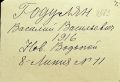 Годулян
Василий Васильевич
1916
Нов. Водопой
8 Линия N 11